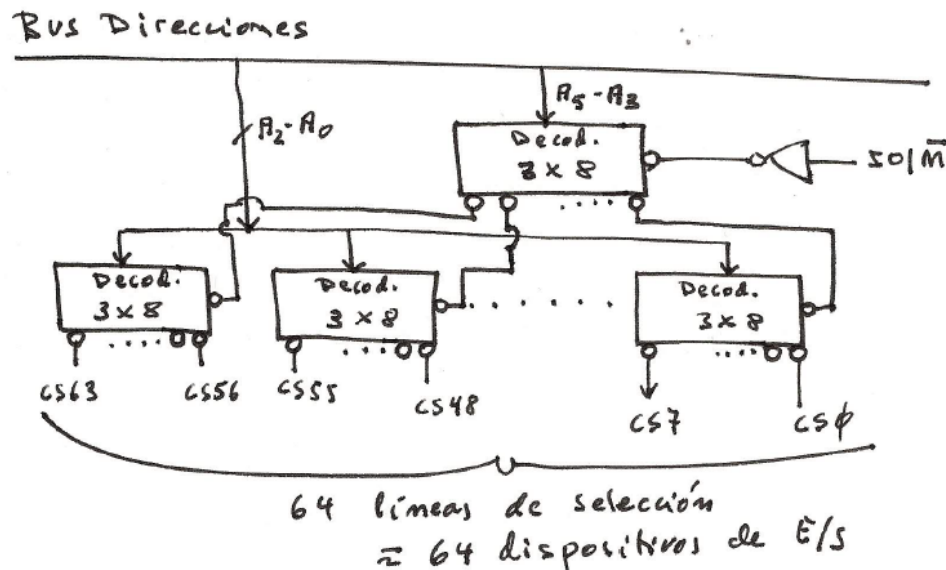 Bus Direcciones
A2-A0
A5-A3
Decod.
3 x 8
IO/M̅
Decod.
3 x 8
Decod.
3 x 8
Decod.
3 x 8
CS63
CS56
CS55
CS48
CS7
CSφ
64 líneas de selección
≈ 64 dispositivos de E/S